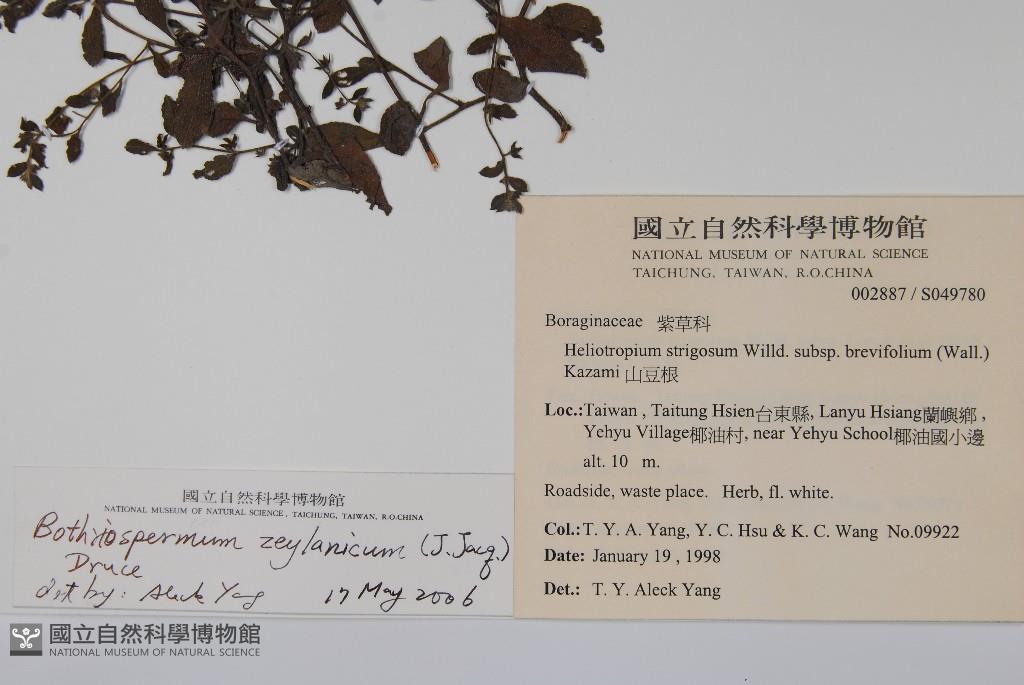 國立自然科學博物館
NATIONAL MUSEUM OF NATURAL SCIENCE
TAICHUNG, TAIWAN, R.O.CHINA
002887 / S049780
Boraginaceae 紫草科
Heliotropium strigosum Willd. subsp. brevifolium (Wall.)
Kazami 山豆根
Loc.:Taiwan , Taitung Hsien台東縣, Lanyu Hsiang蘭嶼鄉 ,
Yehyu Village椰油村, near Yehyu School椰油國小邊
alt. 10 m.
Roadside, waste place. Herb, fl. white.
Col.:T. Y. A. Yang, Y. C. Hsu & K. C. Wang No.09922
Date: January 19 , 1998
Det.: T. Y. Aleck Yang
國立自然科學博物館
NATIONAL MUSEUM OF NATURAL SCIENCE , TAICHUNG, TAIWAN, R.O.CHINA
Bothriospermum zeylanicum (J. Jacq.)
Druce
det by: Aleck Yang 17 May 2006
國立自然科學博物館
NATIONAL MUSEUM OF NATURAL SCIENCE